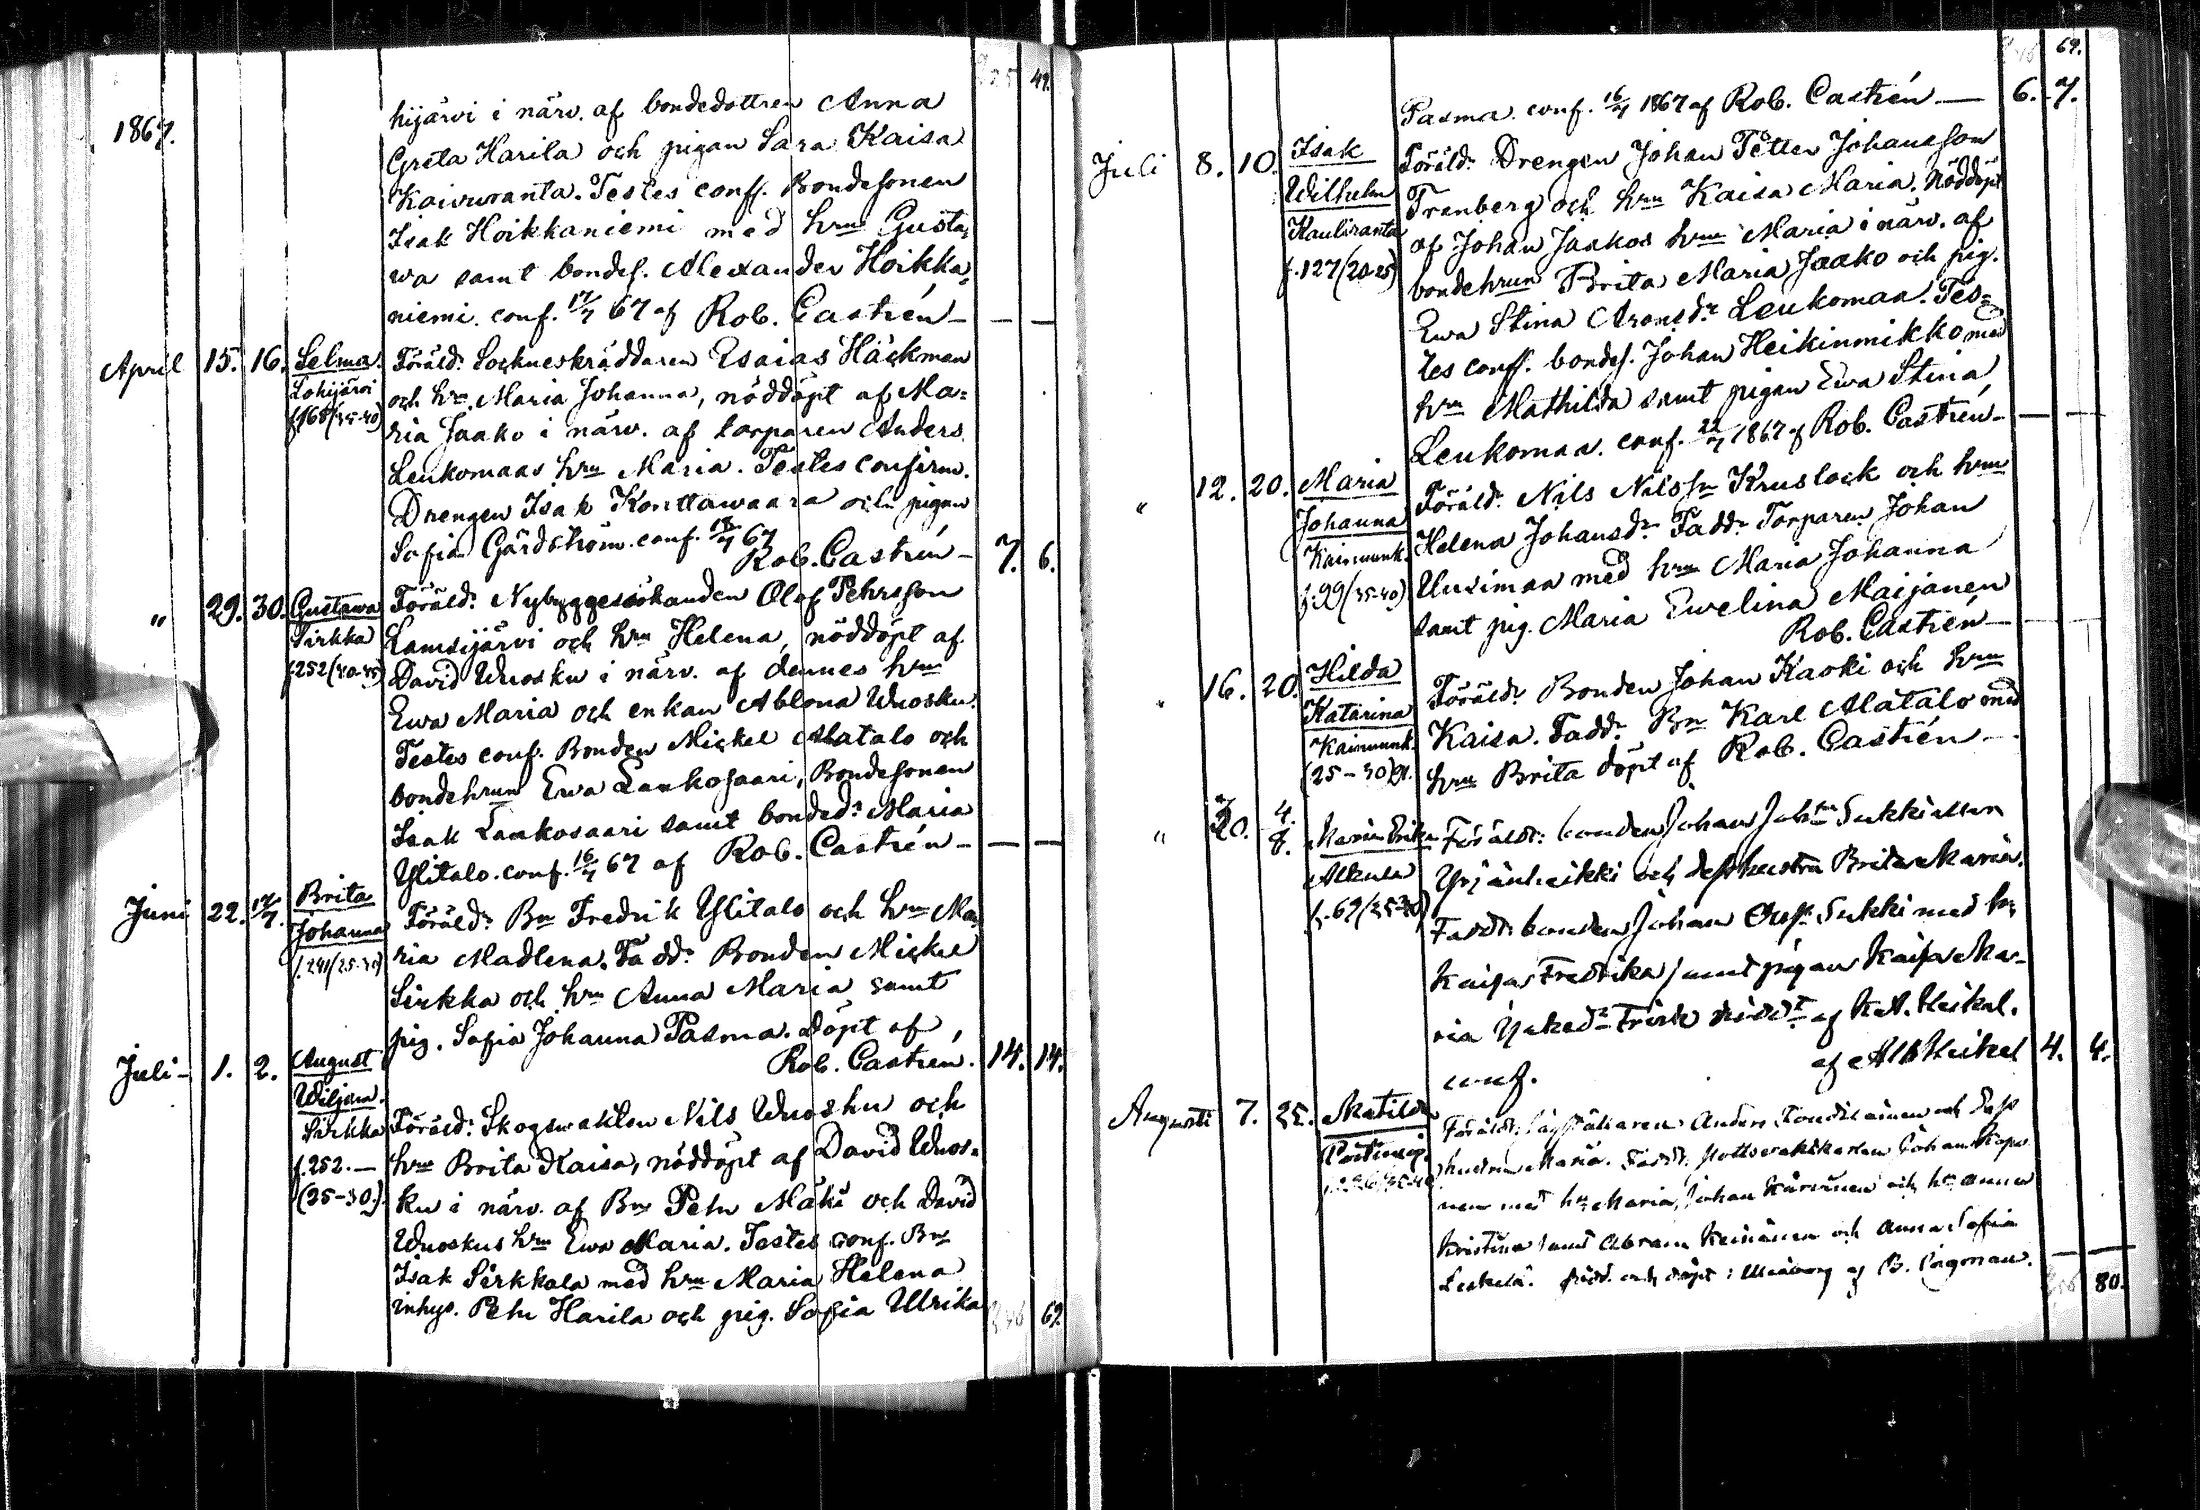 49.
1867.
hijärvi i närv. af bondedottren Anna
Greta Harila och pigan Sara Kaisa
Kaivuranta. Testes conf. Bondesonen
Isak Hoikkaniemi med hru Gusta,
va samt bondes. Alexander Hoikka,
niemi. conf. 17/7 67 af Rob. Castrén —
April 15. 16. Selma. Föräld: Sockneskräddaren Esaias Häckman
Lohijärvi och hru Maria Johanna, nöddöpt af Ma=
f.168(35-40) ria Jaako i närv. af torparen Anders
Leukomaas hru Maria. Testes confirm.
Drengen Isak Konttawaara och pigan
Sofia Gärdström. conf. 18/7 67
Rob. Castrén — 7. 6.
" 29. 30. Gustawa Föräld: Nybyggessökanden Olof Pehrsson
Sirkka Lamsijärvi och hru Helena, nöddöpt af
f.252(40-45) David Wuosku i närv. af dennes hru
Ewa Maria och enkan Ablona Wuosku.
Testes conf. Bonden Mickel Alatalo och
bondehrun Ewa Lankosaari, Bondesonen
Isak Lankosaari samt bonded: Maria
Ylitalo. conf. 16/7 67 af Rob. Castrén —
Juni 22. 14/7. Brita
Johanna Föräld: Bn Fredrik Ylitalo och hru Ma,
f.241(25-30) ria Madlena. Fadd: Bonden Mickel
Sirkka och hru Anna Maria samt
pig. Sofia Johanna Pasma. döpt af
Rob. Castrén. 14. 14.
Juli — 1. 2. August
Wiljam.
Sirkka Föräld: Skogsvakten Nils Wuosku och
f.252.— hru Brita Kaisa, nöddöpt af David Wuos=
(25-30.) ku i närv. af Bn Pehr Mäki och David
Wuoskus hru Ewa Maria. Testes conf. Bn
Isak Sirkkala med hru Maria Helena
inhys. Pehr Harila och pig. Sofia Ulrika
69.
69.
Pasma. conf. 16/7 1867 af Rob. Castrén — 6. 7.
Juli 8. 10. Isak Föräld: Drengen Johan Petter Johansson
Wilhelm Tranberg och hru Kaisa Maria. Nöddöpt
Kauliranta af Johan Jaakos hru Maria i närv. af
f.127(20-25) bondehrun Brita Maria Jaako och pig.
Ewa Stina Aronsd:r Leukomaa. Tes=
tes conf. bondes. Johan Heikinmikko med
hru Mathilda samt pigan Ewa Stina
Leukomaa. conf. 22/7 1867 af Rob. Castrén —
" 12. 20. Maria Föräld: Nils Nilssn Kruslock och hru
Johanna Helena Johansd:r Fadd:r Torparen Johan
Kainuunk. Uusimaa med hru Maria Johanna
f.99(35-40) samt pig. Maria Ewelina Maijanen
Rob. Castrén —
16. 20. Hilda Föräld: Bonden Johan Kaski och hru
Katarina Kaisa. Fadd: Bn Karl Alatalo med
Kainuunk. hru Brita döpt af Rob. Castrén —
(25-30)
" 20. 4/8. Maria Erika Föräldr: bonden Johan Sukki
Alkula och dess hustru Brita Maria.
f.69(25-30) Faddr: bonden Johan Sukki med h:u
Kaisa Fredrika samt pigan Kaisa Ma-
ria Frisk af Heikel.
conf. af Alb Heikel 4. 4.
Augusti 7. 25. Matilda Föräldr: Anders och dess
hustru Maria. Faddr: Johan
med h:u Maria, Johan och h:u Anna
Kristina samt Abram och Anna Sofia
född och döpt i af B.
80.